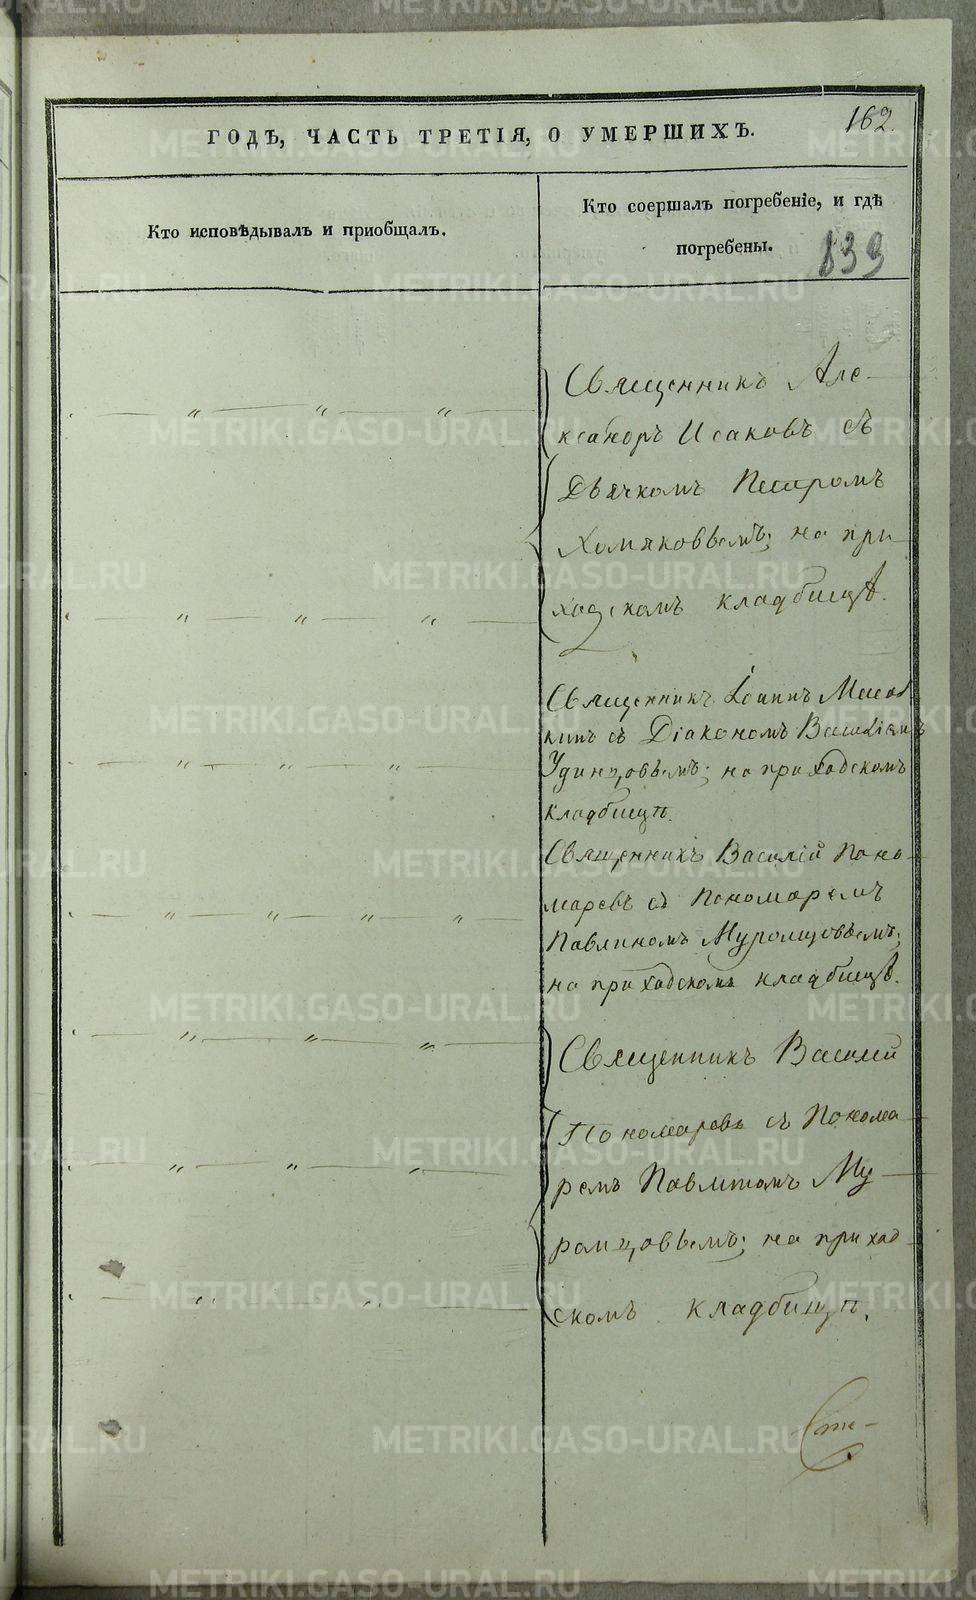 162.
ГОДѢ, ЧАСТЬ ТРЕТІЯ, О УМЕРШИХЪ.
Кто исповѣдывалъ и приобщалъ.
Кто соершалъ погребеніе, и гдѣ
погребены.
839
Священникъ Але-
ксандръ Исаковъ съ
Дьячкомъ Петромъ
Хомяковымъ; на при-
ходскомъ кладбищѣ.
Священникъ Іоаннъ
съ Діакономъ Василіемъ
Удинцовымъ; на приходскомъ
кладбищѣ.
Священникъ Василій Поно-
маревъ съ Пономаремъ
Павлиномъ Муромцовымъ;
на приходскомъ кладбищѣ.
Священникъ Василій
Пономаревъ съ Понома-
ремъ Павлиномъ Му-
ромцовымъ; на приход-
скомъ кладбищѣ.
METRIKI.GASO-URAL.RU